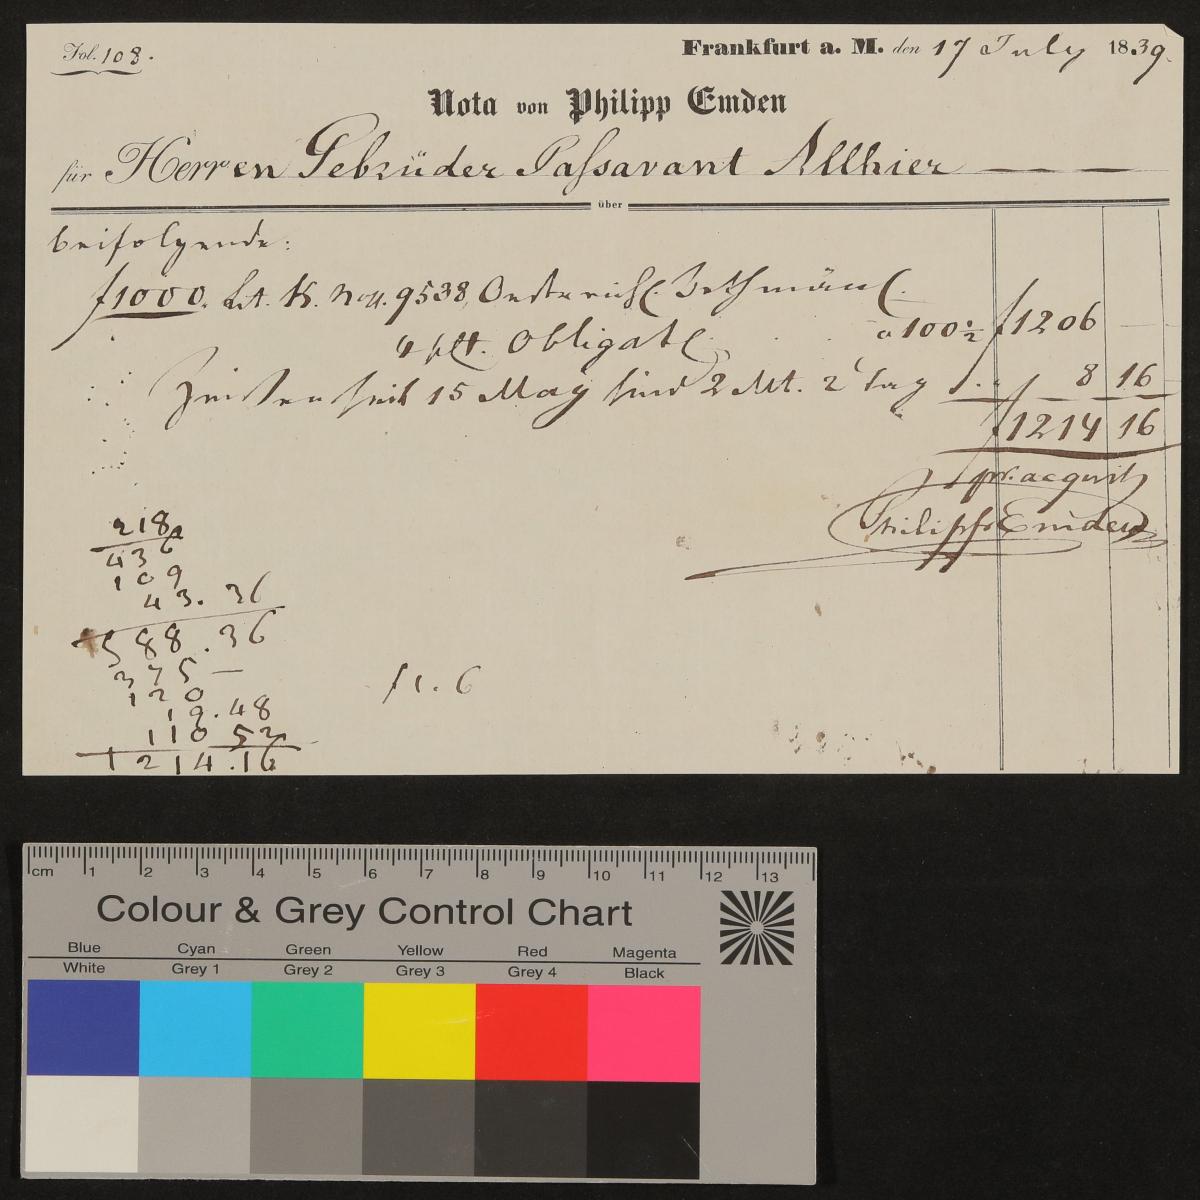 Fol. 108.
Frankfurt a. M. den 17 July 1839.
Nota von Philipp Emden
für Herren Gebrüder Passavant Allhier
über
beifolgende:
f 1000. Lit. K. No. 9538, Oestreich. Bethmän.
4 pCt. Obligat. a 100½ f 1206 —
Zinsen seit 15 May sind 2 Mt. 2 Tag " 8 16
f 1214 16
pr. acquit
Philipp Emden
218
436
109
43. 36
588. 36
375 —
120
19. 48
110 52
1214. 16
f 1. 6
cm 1 2 3 4 5 6 7 8 9 10 11 12 13
Colour & Grey Control Chart
Blue Cyan Green Yellow Red Magenta
White Grey 1 Grey 2 Grey 3 Grey 4 Black